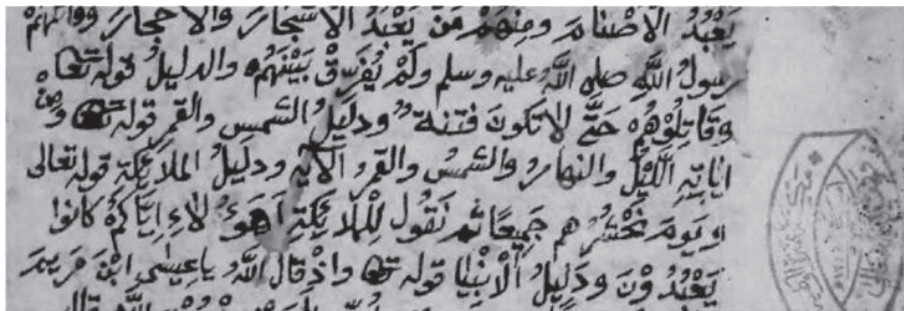 يَعْبُدُ الْاَصْنَامَ وَمِنْهُمْ مَنْ يَعْبُدُ الْاَشْجَارَ وَالْاَحْجَارَ وقاتلهم
رسولُ اللَّهِ صلى اللَّهُ عليه وسلم وَلَمْ يُفَرِّقْ بَيْنَهُمْ والدليلُ قوله تعا
وَقَاتِلُوْهُمْ حَتَّى لا تَكُونَ فتنة ودليلُ الشمسِ والقمرِ قوله تعا وَمِنْ
اٰيَاتِهِ اللَّيْلُ والنهارُ والشمسُ والقمرُ الآية ودليلُ الملائِكةِ قوله تعالى
وَيَومَ نَحْشُرُهم جَمِيعًا ثم نَقُول لِلْمَلائِكَةِ اَهَؤُلاءِ اِيَّاكُمْ كانُوا
يَعْبُدُوْنَ وَدَلِيلُ الْاَنْبِيا قوله تعا واذْ قال اللَّهُ ياعيسَى ابْنَ مريمَ